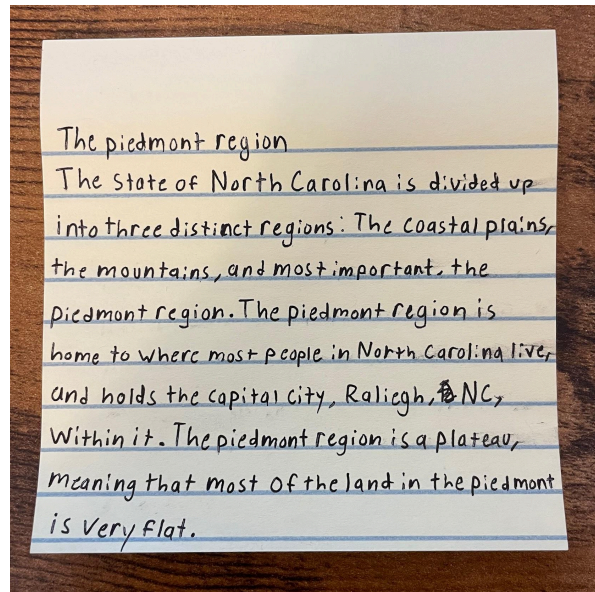 The piedmont region
The state of North Carolina is divided up
into three distinct regions: The coastal plains,
the mountains, and most important, the
piedmont region. The piedmont region is
home to where most people in North Carolina live,
and holds the capital city, Raliegh, NC,
Within it. The piedmont region is a plateau,
meaning that most of the land in the piedmont
is very flat.